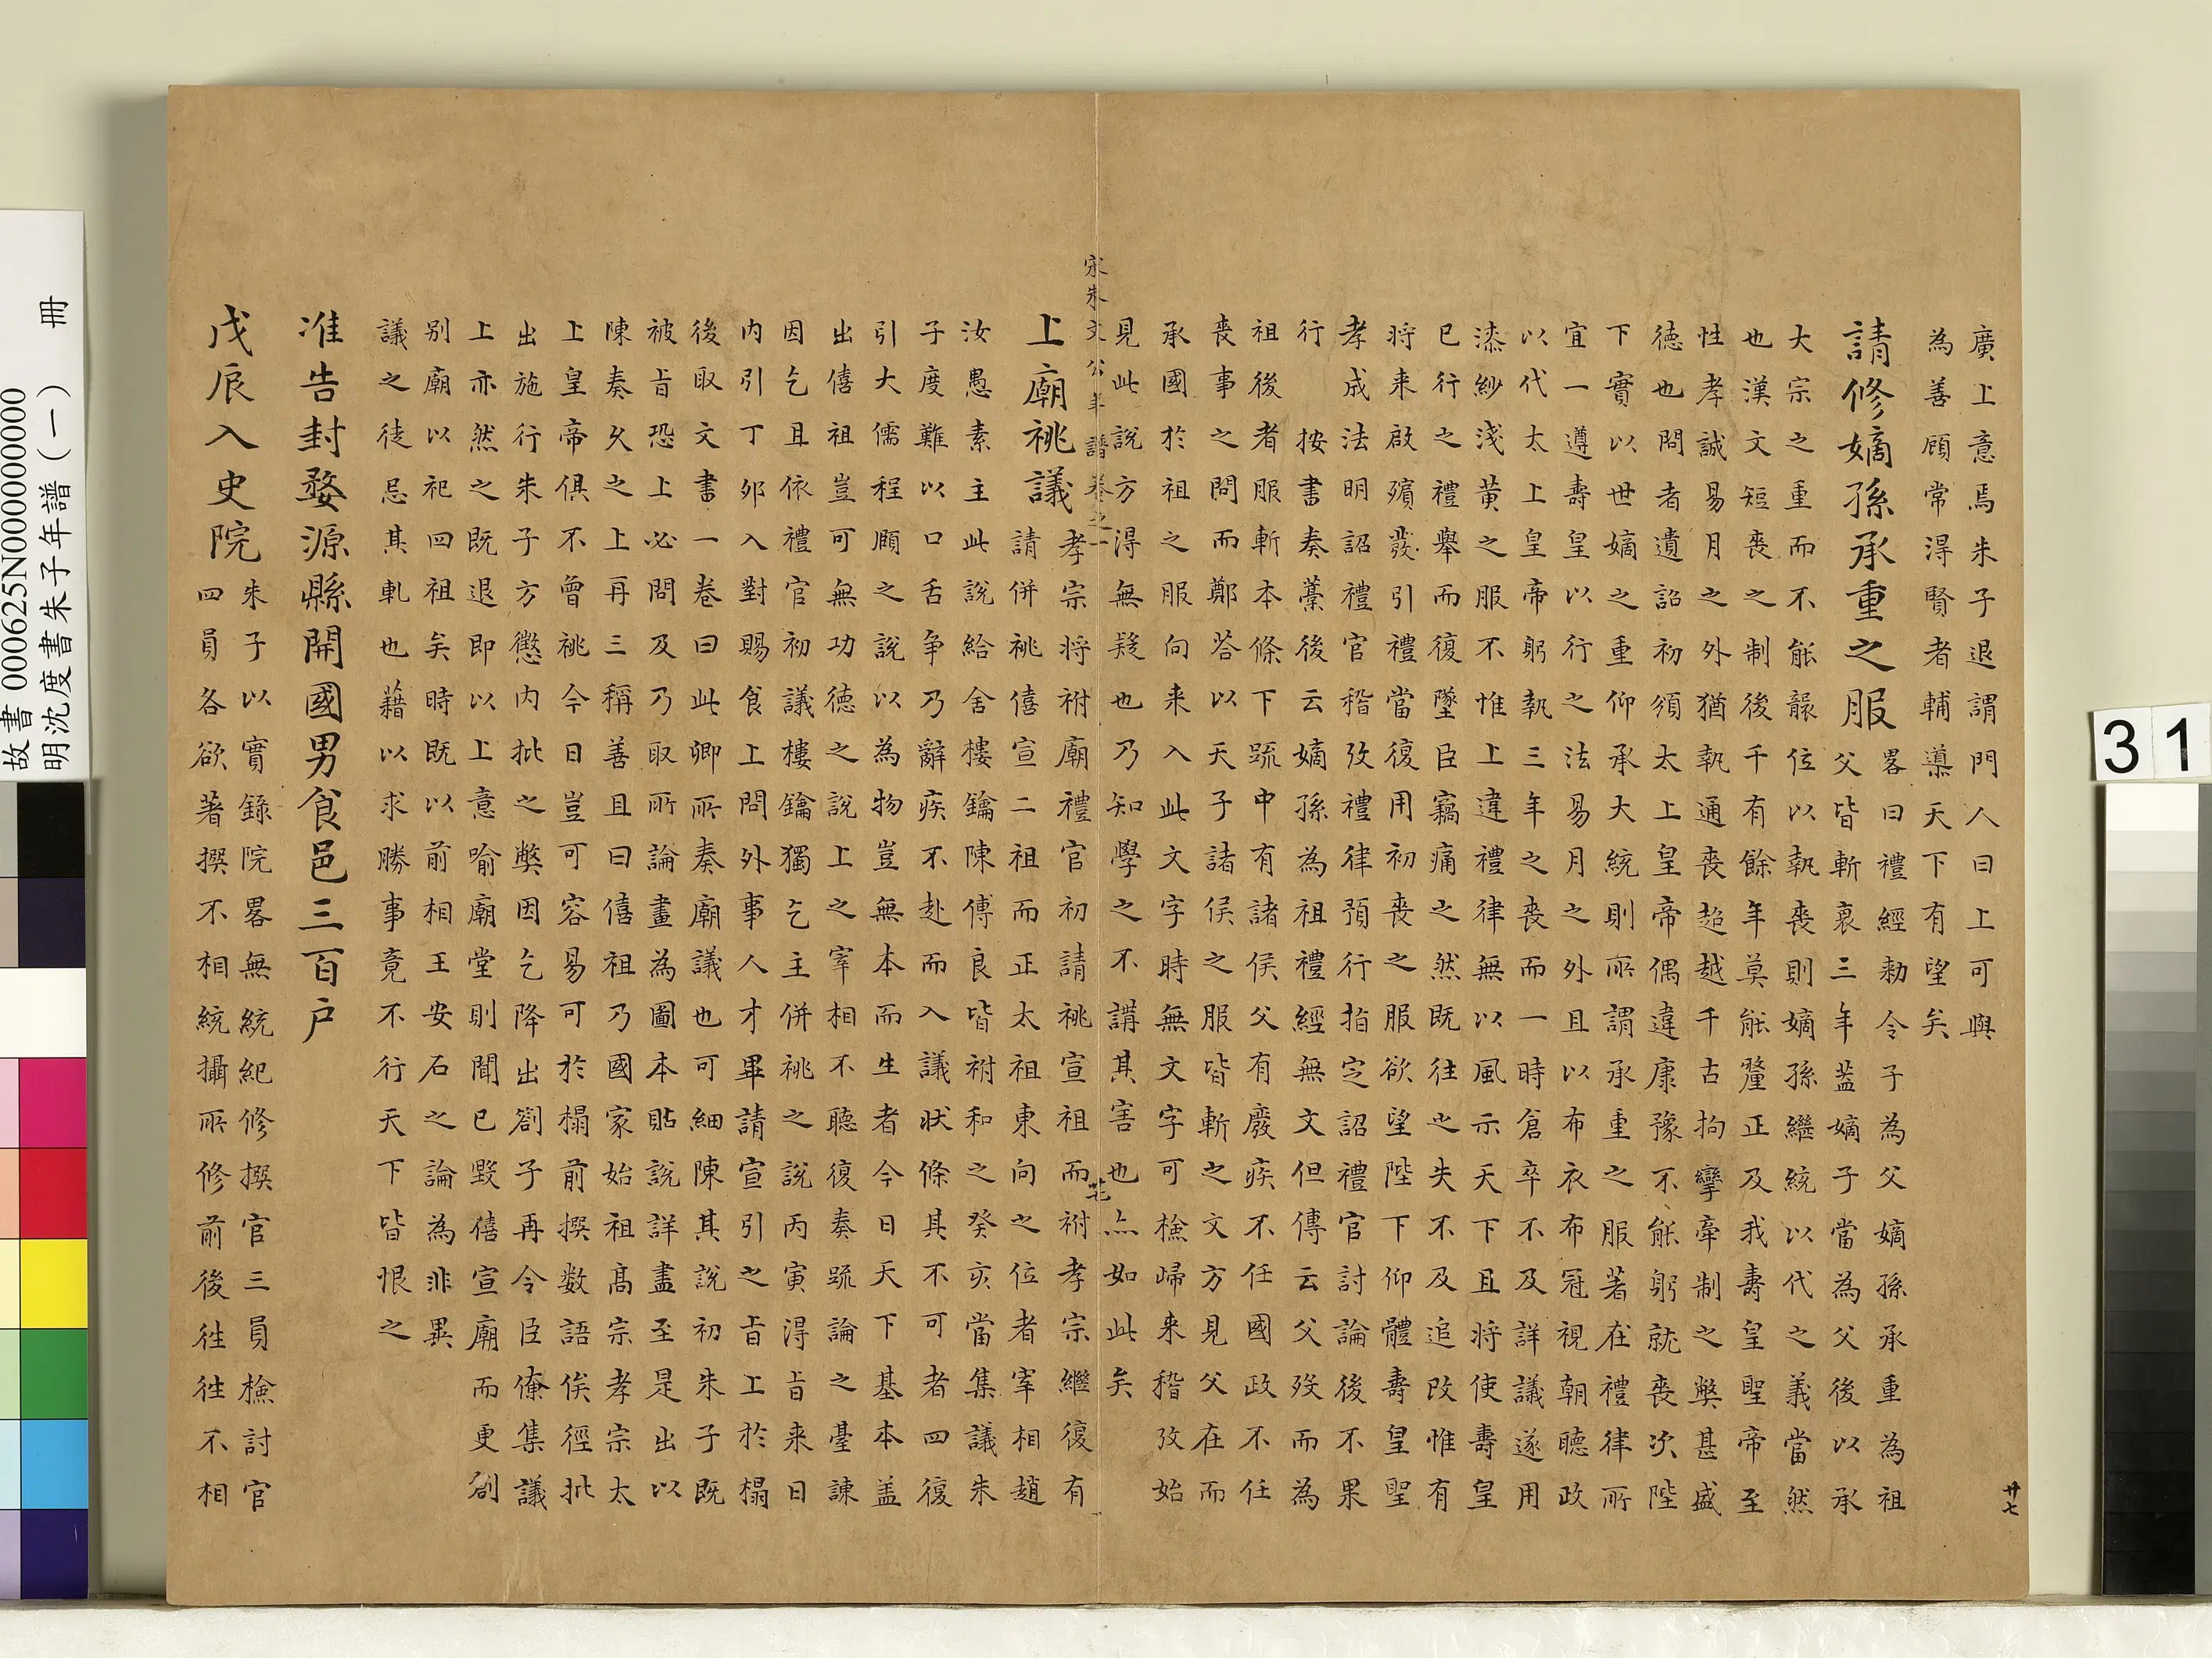 廣上意焉朱子退謂門人曰上可與
為善顧常得賢者輔導天下有望矣
請修嫡孫承重之服
畧曰禮經勑令子為父嫡孫承重為祖
父皆斬衰三年盖嫡子當為父後以承
大宗之重而不能襲位以執喪則嫡孫繼統以代之義當然
也漢文短喪之制後千有餘年莫能釐正及我壽皇聖帝至
性孝誠易月之外猶執通喪超越千古拘攣牽制之獘甚盛
德也間者遺詔初頒太上皇帝偶違康豫不能躬就喪次陛
下實以世嫡之重仰承大統則所謂承重之服著在禮律所
宜一遵壽皇以行之法易月之外且以布衣布冠視朝聽政
以代太上皇帝躬執三年之喪而一時倉卒不及詳議遂用
漆紗淺黃之服不惟上違禮律無以風示天下且将使壽皇
已行之禮舉而復墜臣竊痛之然既往之失不及追改惟有
将来啟殯發引禮當復用初喪之服欲望陛下仰體壽皇聖
孝成法明詔禮官稽攷禮律預行指定詔禮官討論後不果
行 按書奏藳後云嫡孫為祖禮經無文但傳云父歿而為
祖後者服斬本條下疏中有諸侯父有廢疾不任國政不任
喪事之問而鄭荅以天子諸侯之服皆斬之文方見父在而
承國於祖之服向来入此文字時無文字可檢歸来稽攷始
見此說方得無疑也乃知學之不講其害也亦如此矣
宋朱文公年譜卷之一
廿七
上廟祧議
孝宗将祔廟禮官初請祧宣祖而祔孝宗繼復有
請併祧僖宣二祖而正太祖東向之位者宰相趙
汝愚素主此說給舍樓鑰陳傅良皆祔和之癸亥當集議朱
子度難以口舌争乃辭疾不赴而入議状條其不可者四復
引大儒程頤之說以為物豈無本而生者今日天下基本盖
出僖祖豈可無功德之說上之宰相不聽復奏疏論之臺諫
因乞且依禮官初議樓鑰獨乞主併祧之說丙寅得旨来日
内引丁夘入對賜食上問外事人才畢請宣引之旨上於榻
後取文書一卷曰此卿所奏廟議也可細陳其說初朱子既
被旨恐上必問及乃取所論畫為圖本貼說詳盡至是出以
陳奏久之上再三稱善且曰僖祖乃國家始祖髙宗孝宗太
上皇帝俱不曾祧今日豈可容易可於榻前撰数語俟徑批
出施行朱子方懲内批之獘因乞降出劄子再令臣僚集議
上亦然之既退即以上意喻廟堂則聞已毀僖宣廟而更剏
別廟以祀四祖矣時既以前相王安石之論為非異
議之徒忌其軋也藉以求勝事竟不行天下皆恨之
准告封婺源縣開國男食邑三百户
戊辰入史院
朱子以實錄院畧無統紀修撰官三員檢討官
四員各欲著撰不相統攝所修前後往往不相
廿七
故書 000625N000000000
明沈度書朱子年譜(一) 冊
31